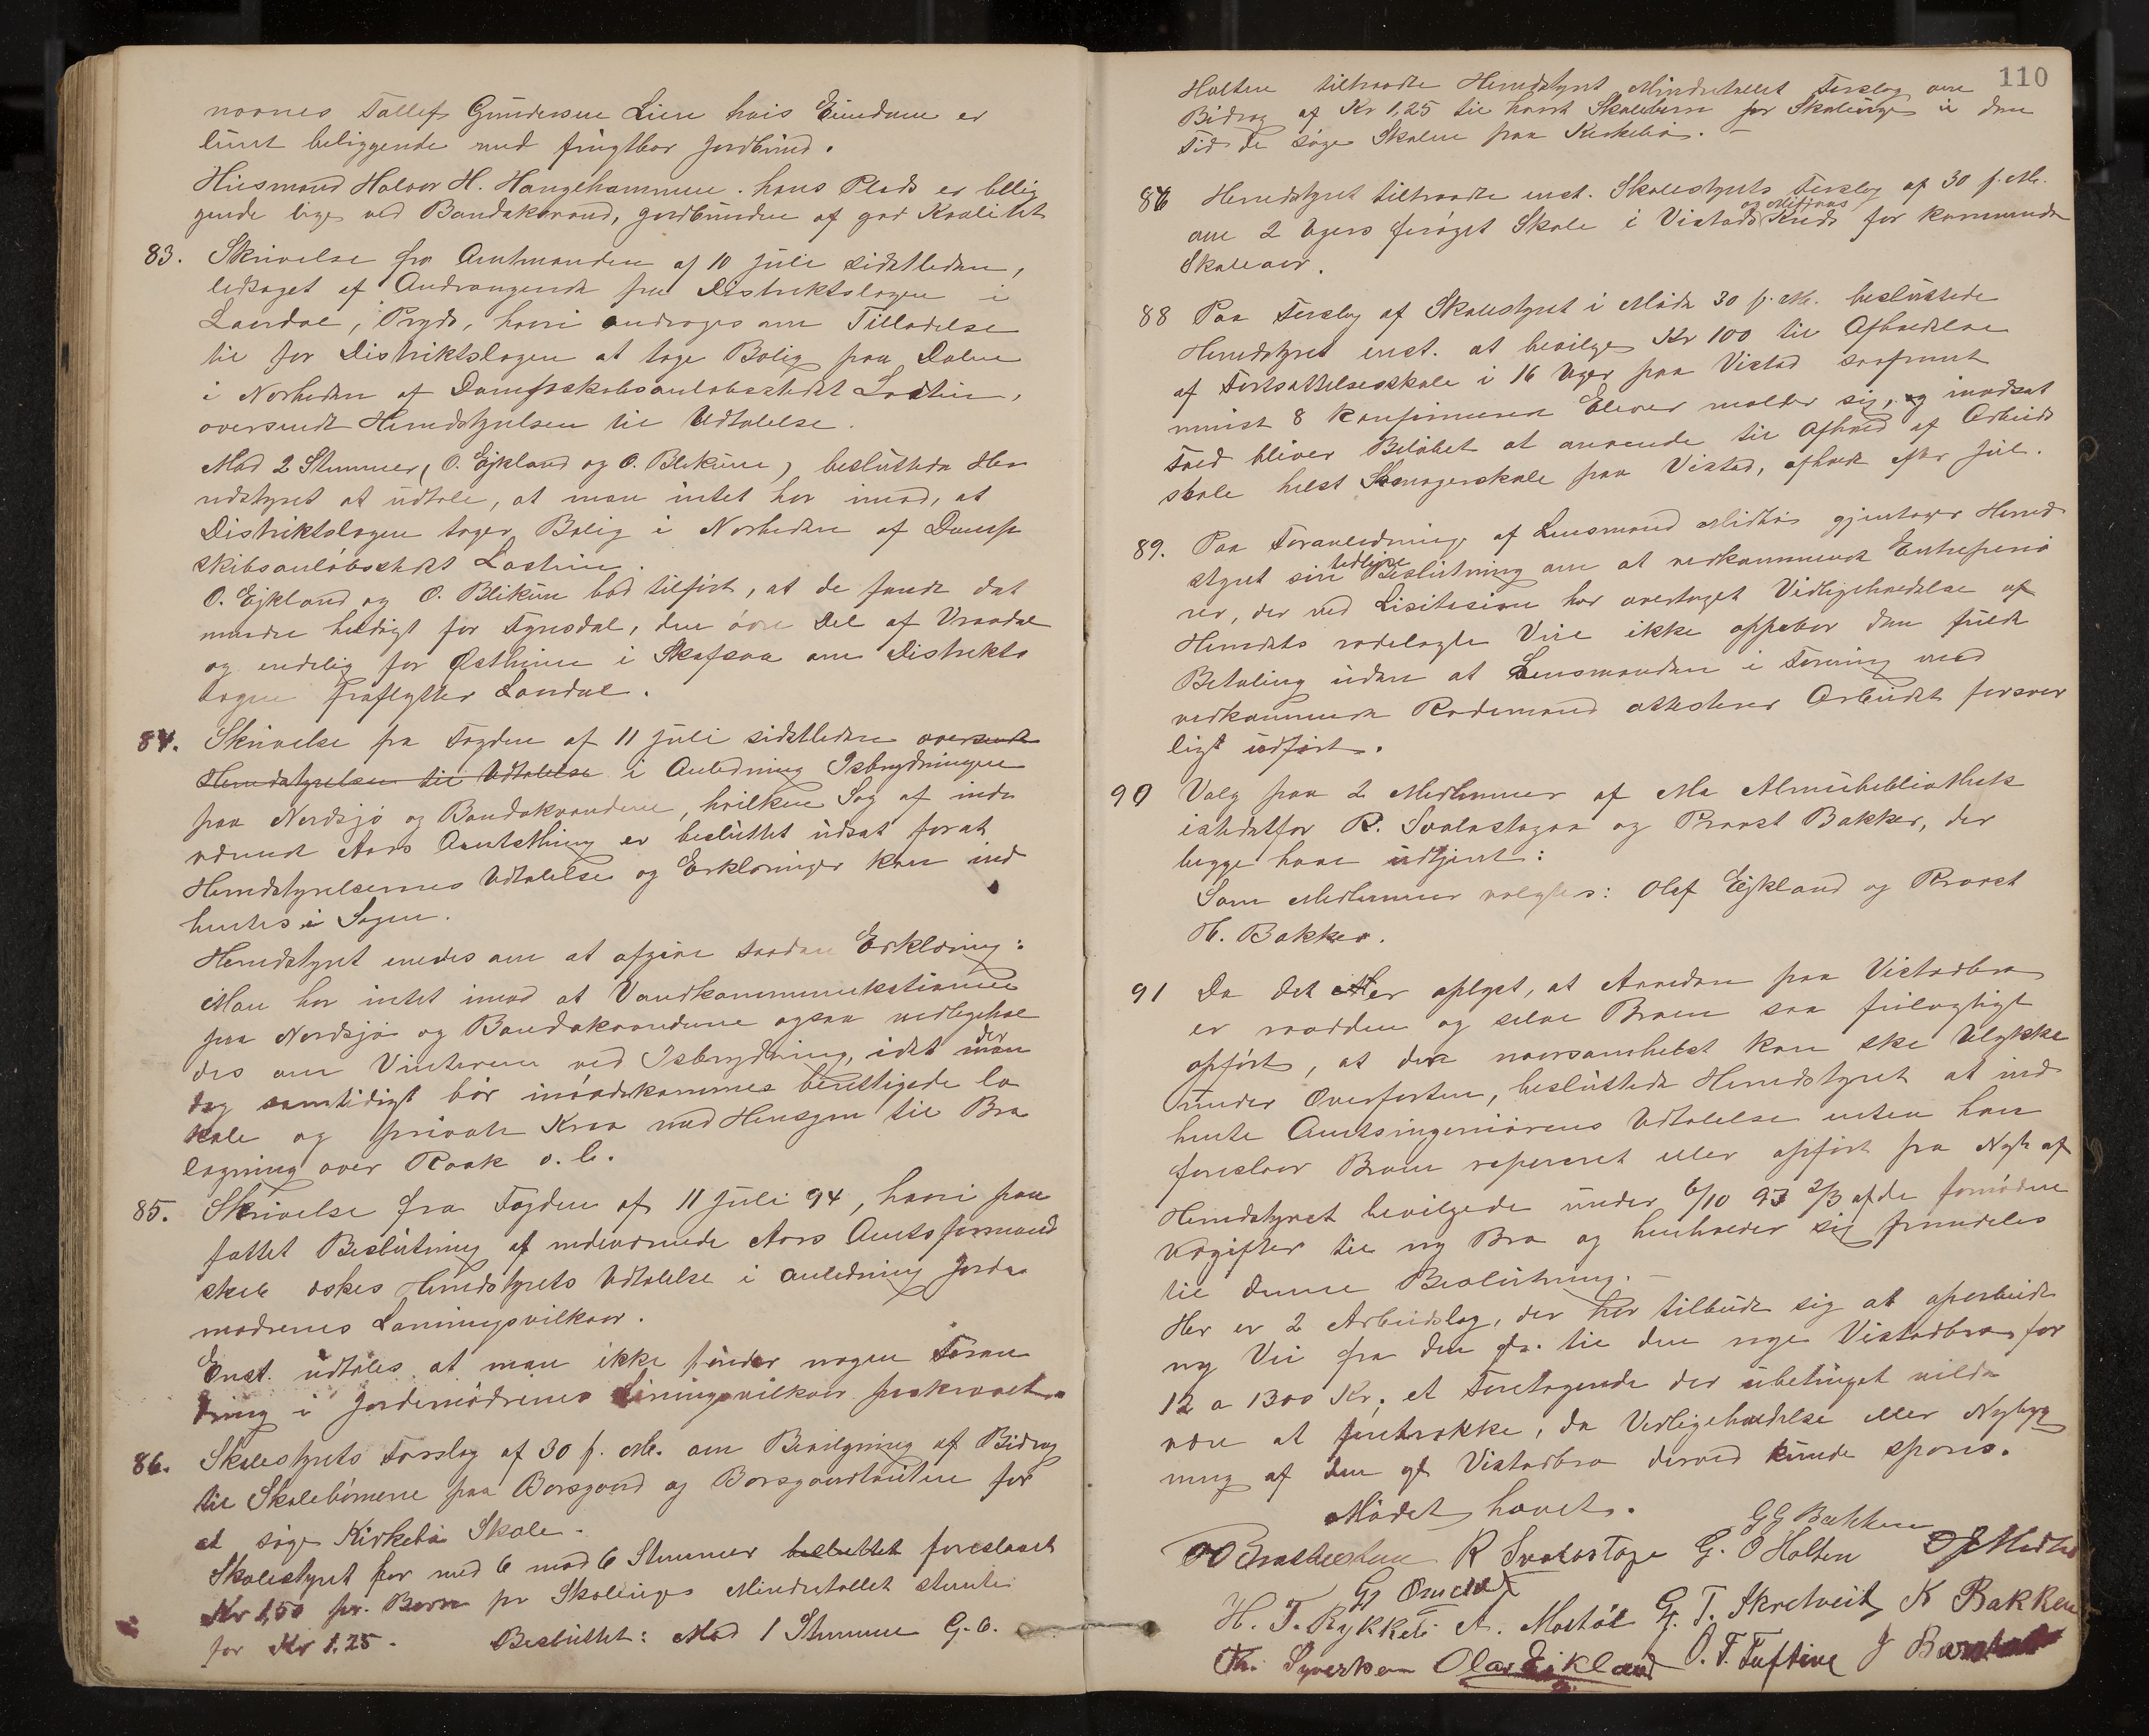 noones Tallef Gundersen Lien hvis Eiendom er
lunt beliggende med frugtbar Jordbund.
Husmand Halvor H. Haugehammeren. hans Plads er bllig
gende lige ved Bandaksvand, Jordbunden af god Kvalitet
83. Skrivelse fra Amtmanden af 10 juli sidstleden,
ledsaget af Andragende fra Distriktslægen i
Laurdal, Pryds, hvori andrages om Tilladelse
til for Distriktslægen at tage Bolig paa Dalen
i Nærheden af Dampskibsanløbsstedet Lastein,
oversendt Herredstyrelsen til Udtalelse.
Mod 2 Stemmer (O. Ejkland og O. Blikum) besluttede Her
redstyret at udtale, at man intet har imod, at
Distriktslægen tager Bolig i Nærheden af Damp
skibsanløbsstedet Lastein.
O. Ejkland og O. Blikum bød tilført, at de fandt det
mindre heldigt for Fyresdal, den øvre Del af Vraadal
og endelig for Østheim i Skafsaa om Distrikts
lægen fraflytter Laurdal.
84. Skrivelse fra Fogden af 11 juli sidstleden oversendt
Herredstyrelsen til Udtalelse i Anledning Isbrydningen
paa Nordsjø og Bandaksvandene, hvilken Sag af inde
værende Aars Amtsthing er besluttet udsat forat
Herredstyrelsernes Udtalelse og Erklæringer kan ind
hentes i Sagen.
Herredstyret enedes om at afgive saadan Erklæring:
Man har intet imod at Vandkommunikationen
paa Nordsjø og Bandaksvandene ogsaa vedligehol
des om Vinteren ved Isbrydning, idet man der
dog samtidigt bør imødekommes berettigede lo
kale og private Krav med Hensyn til Bro
lægning over Raak o. l.
85. Skrivelse fra Fogden af 11 Juli 94, hvori paa
fattet Beslutning af indeværende Aars Amtsformand
skab æskes Herredstyrets Udtalelse i anledning Jorde
mødrenes Lønningsvilkaar.
Enst. udtales at man ikke finder nogen Foran
dring i Jordemødrenes Lønningsvilkaar paakrævet.
86. Skolestyrets Forslag af 30 f. M. om Bevilgning af Bidrag
til Skolebørnene paa Borsgaard og Borsgaardtouten for
at søge Kirkebø Skole.
Skolestyret har med 6 mod 6 Stemmer besluttet foreslaaet
Kr 1,50 pr. Barn pr Skoleuge Mindretallet stemte
for Kr 1.25. Besluttet: Mod 1 Stemme G. O.
110
Holten tiltraadte Herredstyret Mindretallets Forslag om
Bidrag af Kr 1,25 til hvert Skolebarn pr Skoleuge i den
Tid de søge Skolen paa Kirkebø.
86 Herredstyret tiltraadte enst. Skolestyrets Forslag af 30 f. M.
om 2 Ugers forøget Skole i Vistads Kreds for kommende
Skoleaar.
88 Paa Forslag af Skolestyret i Møde 30 f. M. besluttede
Herredstyret enst. at bevilge Kr 100 til Afholdelse
af Fortsættelsesskole i 16 Uger paa Vistad saafremt
minst 8 konfirmerede Elever melder sig, og imodsat
Fald bliver Beløbet at anvende til Afhold af Arbeids
skole helst Smagerskole paa Vistad, afholdt efter Jul.
89. Paa Foranledning af Lensmand Midbø gjentager Herred
styret sin tidligere Beslutning om at vedkommende Entreprenø
rer, der ved Lisitasion har overtaget Vedligeholdelse af
Herredets rodelagte Veie ikke oppebær den fulde
Betaling uden at Lensmanden i Forening med
vedkommende Rodemand attesterer Arbeidet forsvar
ligt udført.
90 Valg paa 2 Medlemmer af Mo Almuebibliothek
istedetfor R. Svalastogaa og Provst Bakker, der
begge have udtjent:
Som Medlemmer valgtes: Olaf Ejkland og Provst
H. Bakker.
91 Da det er oplyst, at Aaredan paa Vistadbro
er raadden og selve Broen saa feilagtigt
opført, at der naarsomhelst kan ske Ulykke
under Overfarten, besluttede Herredstyret at ind
hente Amtsingeniørens Udtalelse enten han
foreslaar Broen repareret eller opført fra Nyt af
Herredstyret bevilgede under 6/10 93 2/3 af de fornødne
Udgifter til ny Bro og henholder sig fremdeles
til denne Beslutning.
Her er 2 Arbeidslag, der har tilbudt sig at oparbeide
ny Vei fra den gl. til den nye Vistadbro for
12 a 1300 Kr; et Foretagende der ubetinget vilde
være at foretrække, da Vedligeholdelse eller Nybyg
ning af den gl Vistadbro derved kunde spares.
Mødet hævet.
GG Bakken
R Svalastoga G. O Holten
H. T. Rykkeli A. Mostøl G. T. Skretveit K Bakken
Th. Syvertsen Olav Eikland O. T. Tuftine